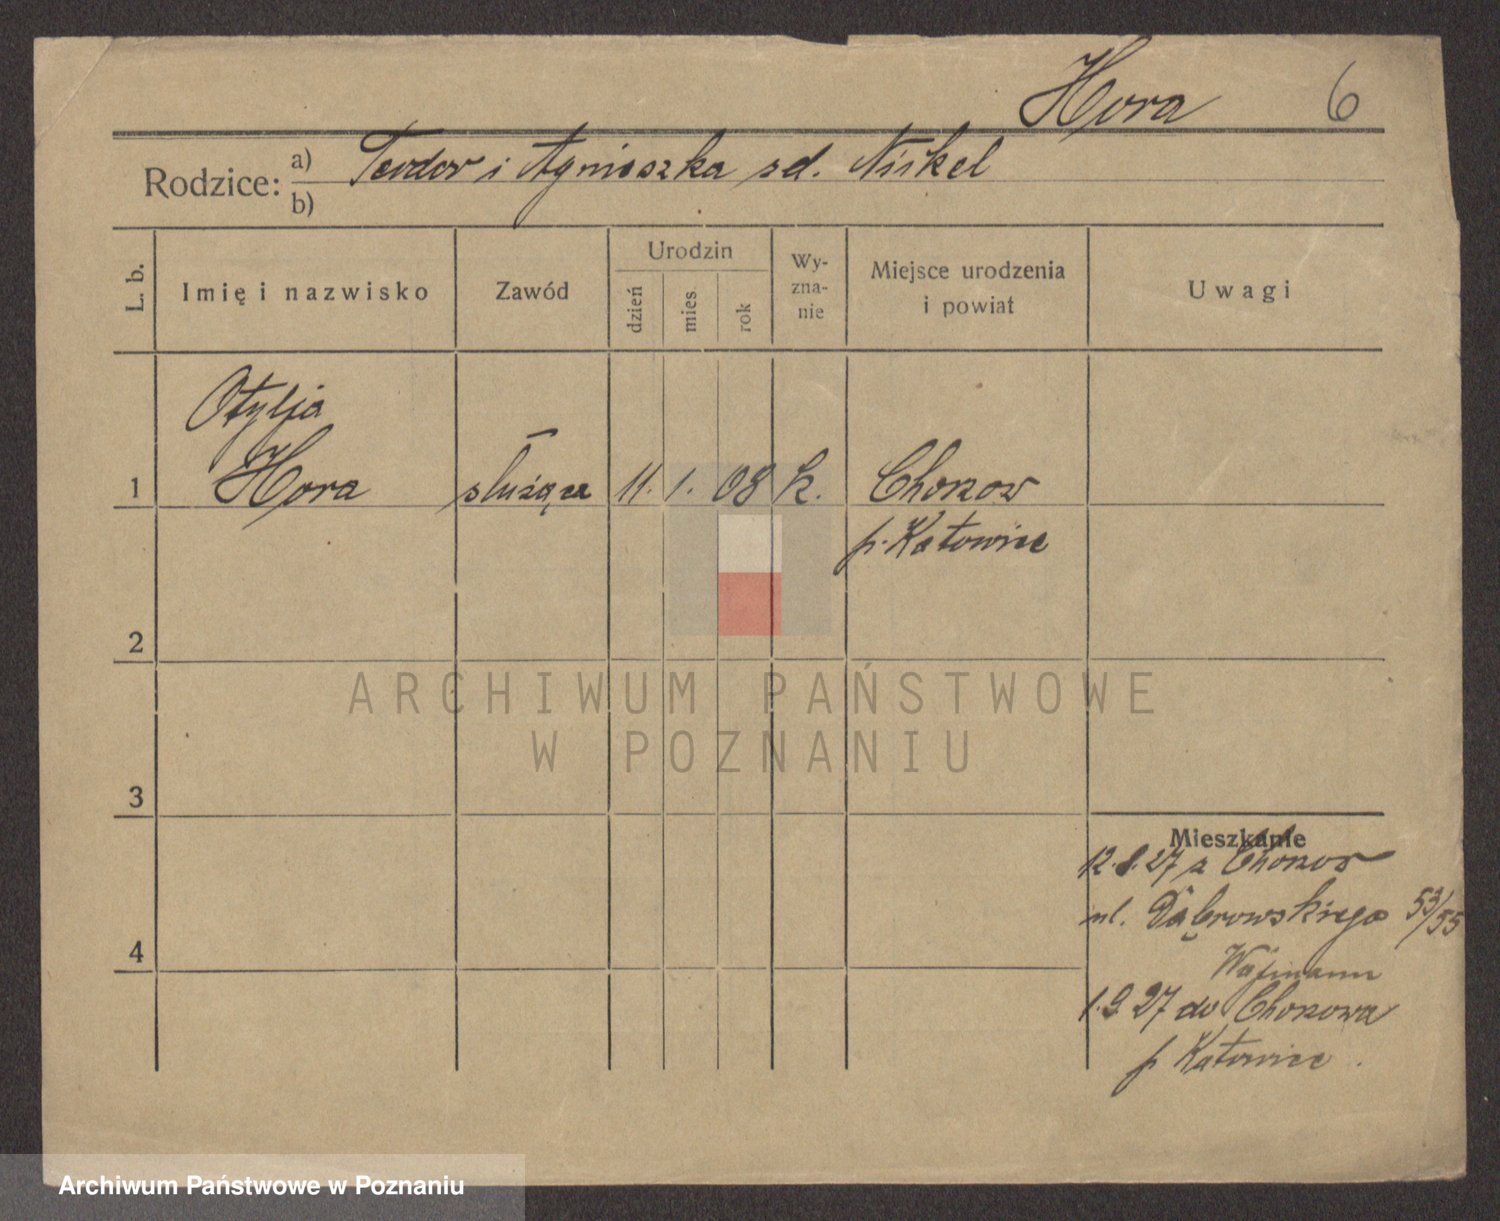 Hora 6
Rodzice: a) Teodor i Agnieszka zd. Nickel
b)
L. b. Imię i nazwisko Zawód Urodzin dzień mies rok Wy-zna-nie Miejsce urodzenia i powiat Uwagi
Otylja
1 Hora służąca 11. 1. 08 k. Chorzow
p. Katowice
2
ARCHIWUM PAŃSTWOWE
W POZNANIU
3
Mieszkanie
12.8.27 z Chorzow
ul. Dąbrowskiego 53/55
4
1.9.27 do Chorzowa
p Katowice.
Archiwum Państwowe w Poznaniu